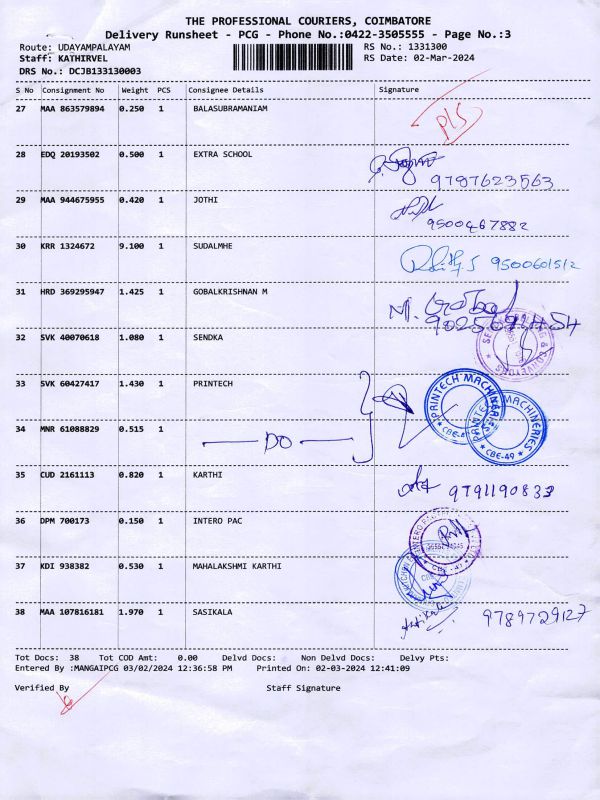 THE PROFESSIONAL COURIERS, COIMBATORE
Delivery Runsheet - PCG - Phone No.:0422-3505555 - Page No.:3
Route: UDAYAMPALAYAM RS No.: 1331300
Staff: KATHIRVEL RS Date: 02-Mar-2024
DRS No.: DCJB133130003
S No Consignment No Weight PCS Consignee Details Signature
27 MAA 863579894 0.250 1 BALASUBRAMANIAM
28 EDQ 20193502 0.500 1 EXTRA SCHOOL
9787623563
29 MAA 944675955 0.420 1 JOTHI
9500467882
30 KRR 1324672 9.100 1 SUDALMHE
9500601512
31 HRD 369295947 1.425 1 GOBALKRISHNAN M
32 SVK 40070618 1.080 1 SENDKA
33 SVK 60427417 1.430 1 PRINTECH
PRINTECH MACHINERIES
34 MNR 61088829 0.515 1
DO
CBE-49
35 CUD 2161113 0.820 1 KARTHI
9791190833
36 DPM 700173 0.150 1 INTERO PAC
37 KDI 938382 0.530 1 MAHALAKSHMI KARTHI
38 MAA 107816181 1.970 1 SASIKALA
Sasikala 9789729127
Tot Docs: 38 Tot COD Amt: 0.00 Delvd Docs: Non Delvd Docs: Delvy Pts:
Entered By :MANGAIPCG 03/02/2024 12:36:58 PM Printed On: 02-03-2024 12:41:09
Verified By Staff Signature